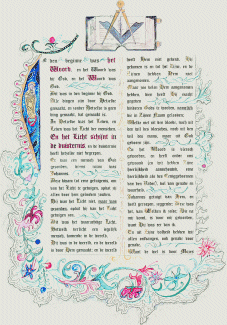 den beginne was het
Woord, en het Woord was
bij God, en het Woord was
God.
Dit was in den beginne bij God.
Alle dingen zijn door Hetzelve
gemaakt, en zonder Hetzelve is geen
ding gemaakt, dat gemaakt is.
In Hetzelve was het Leven, en het
Leven was het Licht der menschen.
En het Licht schijnt in
de duisternis, en de duisternis
heeft hetzelve niet begrepen.
Er was een mensch van God
gezonden, wiens naam was
Johannes.
Deze kwam tot een getuigenis, om
van het Licht te getuigen, opdat zij
allen door hem gelooven zouden.
Hij was het Licht niet, maar was
gezonden, opdat hij van het Licht
getuigen zou.
Dit was het waarachtige Licht,
Hetwelk verlicht een iegelijk
mensch, komende in de wereld.
Hij was in de wereld, en de wereld
is door Hem gemaakt, en de wereld
heeft Hem niet gekend. Hij
gekomen is tot het Zijne, en de
Zijnen hebben Hem niet
aangenomen.
Maar zoo velen Hem aangenomen
hebben, dien heeft Hij macht
gegeven
kinderen Gods te worden, namelijk
die in Zijnen Naam gelooven.
Welke niet uit den bloede, noch uit
den wil des vleesches, noch uit den
wil des mans, maar uit God
geboren zijn.
En het Woord is vleesch
geworden, en heeft onder ons
gewoond (en wij hebben Zijne
heerlijkheid aanschouwd, eene
heerlijkheid als des Eeniggeborenen
van den Vader), vol van genade en
waarheid.
Johannes getuigt van Hem, en
heeft geroepen, zeggende: Deze was
het, van Welken ik zeide: Die na
mij komt, is voor mij geworden,
want Hij was eer dan ik.
En uit Zijne volheid hebben wij
allen ontvangen, ook genade voor
genade.
Want de wet is door Mozes